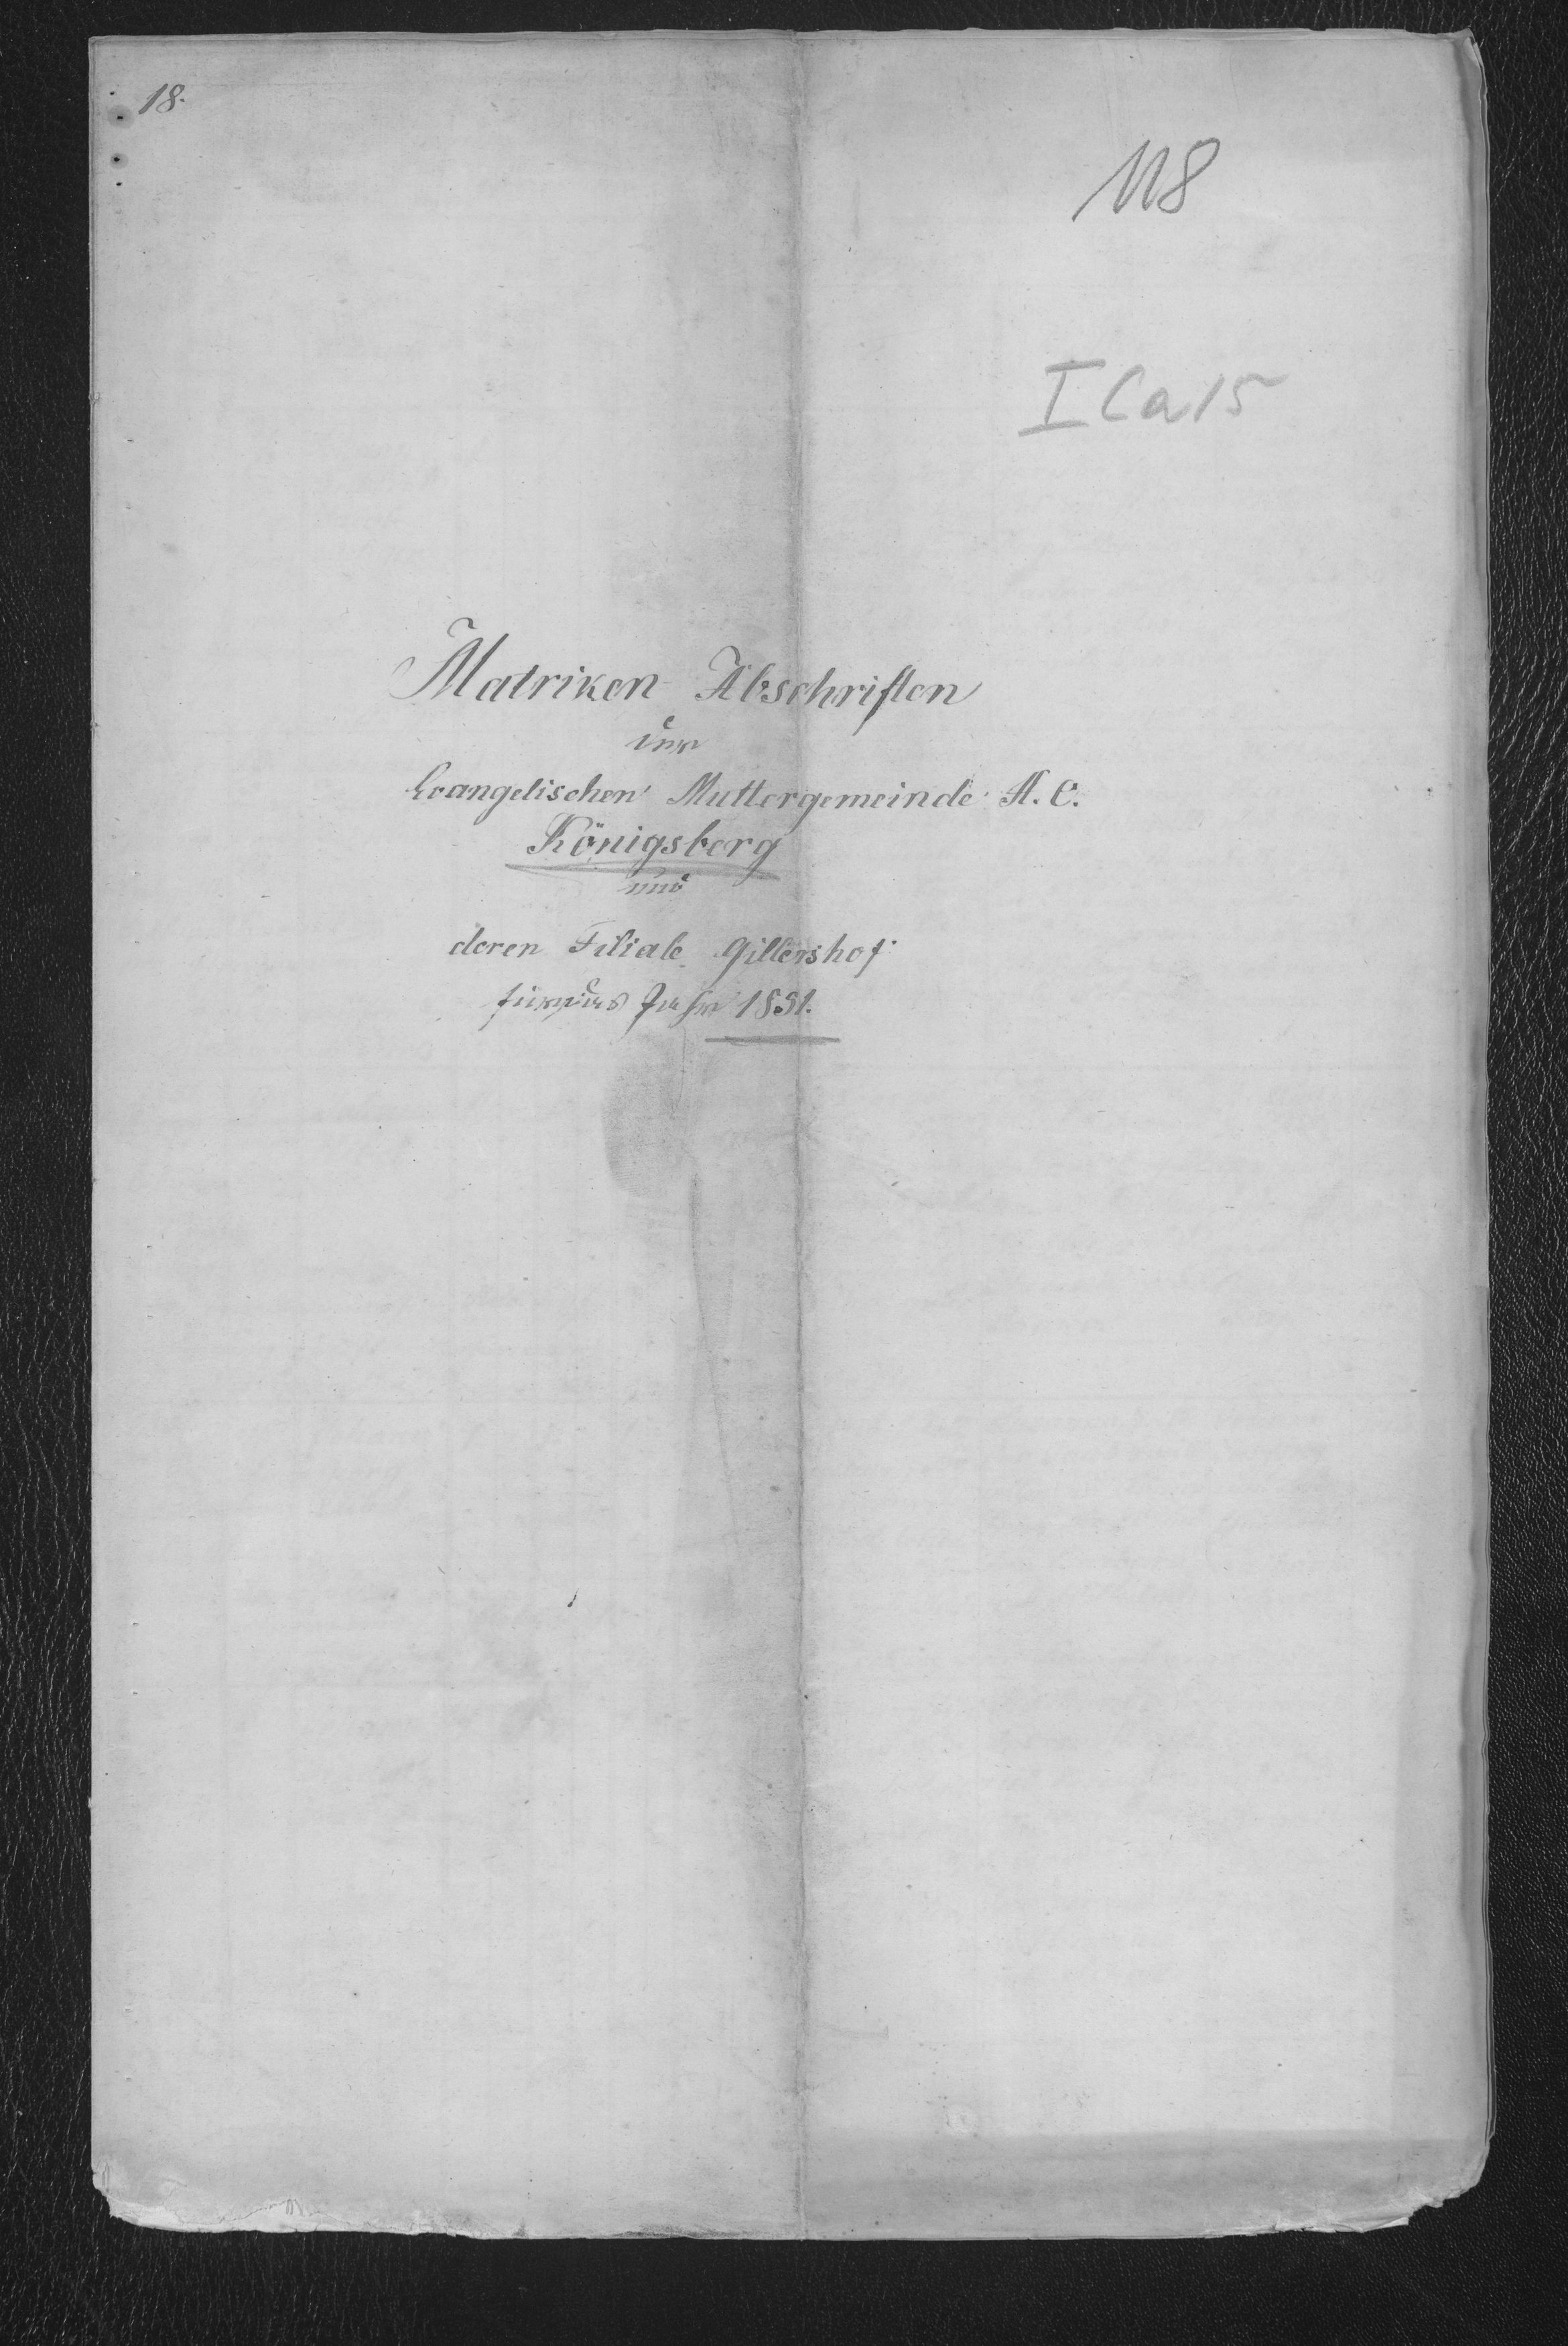 18.
118
I Ca 15
Matriken Abschriften
der
Evangelischen Muttergemeinde A. C.
Königsberg
und
deren Filiale Gillershof
für das Jahr 1891.